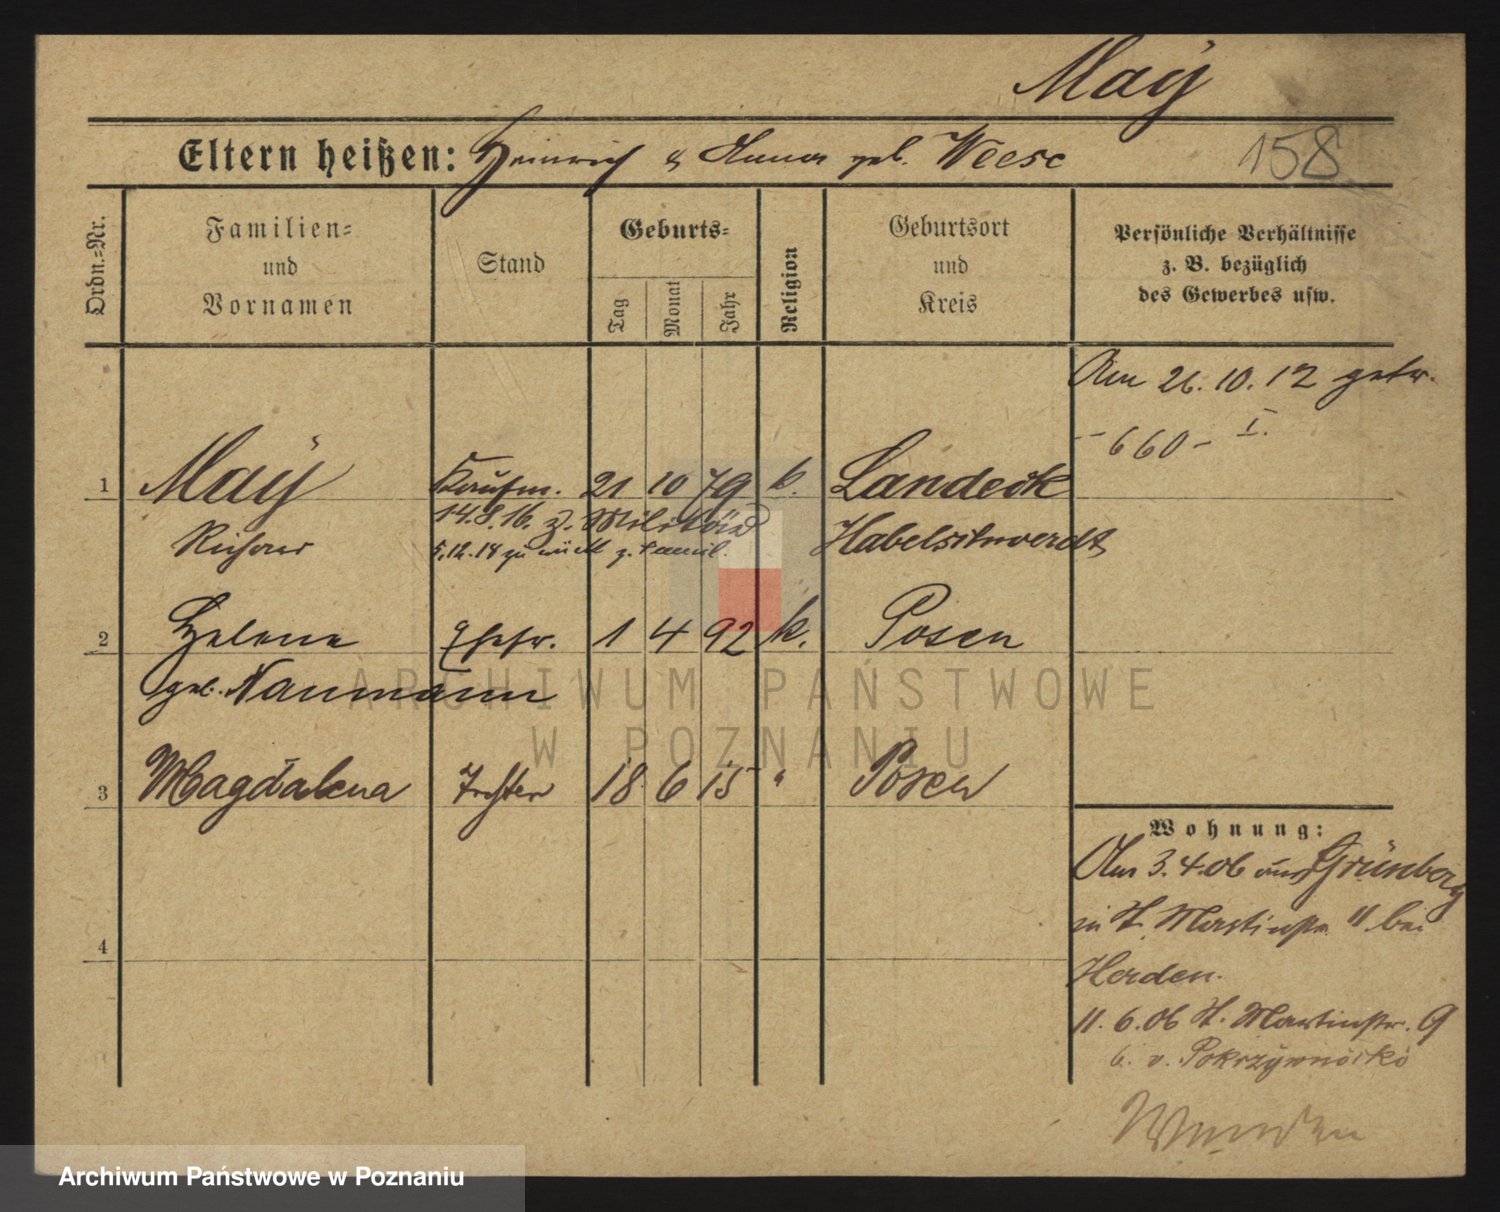 Maÿ
Eltern heißen: Heinrich & Anna geb. Weese
158
Ordn.-Nr.
Familien-
und
Vornamen
Stand
Geburts-
Tag
Monat
Jahr
Religion
Geburtsort
und
Kreis
Persönliche Verhältnisse
z. B. bezüglich
des Gewerbes usw.
Am 26. 10. 12 getr.
-660- I.
1 Maÿ Kaufm. 21 10 79 k. Landeck
14.8.16. z. Militär
Richard Habelschwerdt
5.12.18 zurück z. Famil.
2 Helene Ehefr. 1 4 92 k. Posen
geb. Naumann
3 Magdalena Tochter 18 6 15 " Posen
4
Wohnung:
Am 3. 4. 06 aus Grünberg
in St. Martinstr. 11 bei
Herden.
11. 6. 06 St. Martinstr. 9
b. v. Pokrzÿwnicki
ARCHIWUM PAŃSTWOWE
W POZNANIU
Archiwum Państwowe w Poznaniu